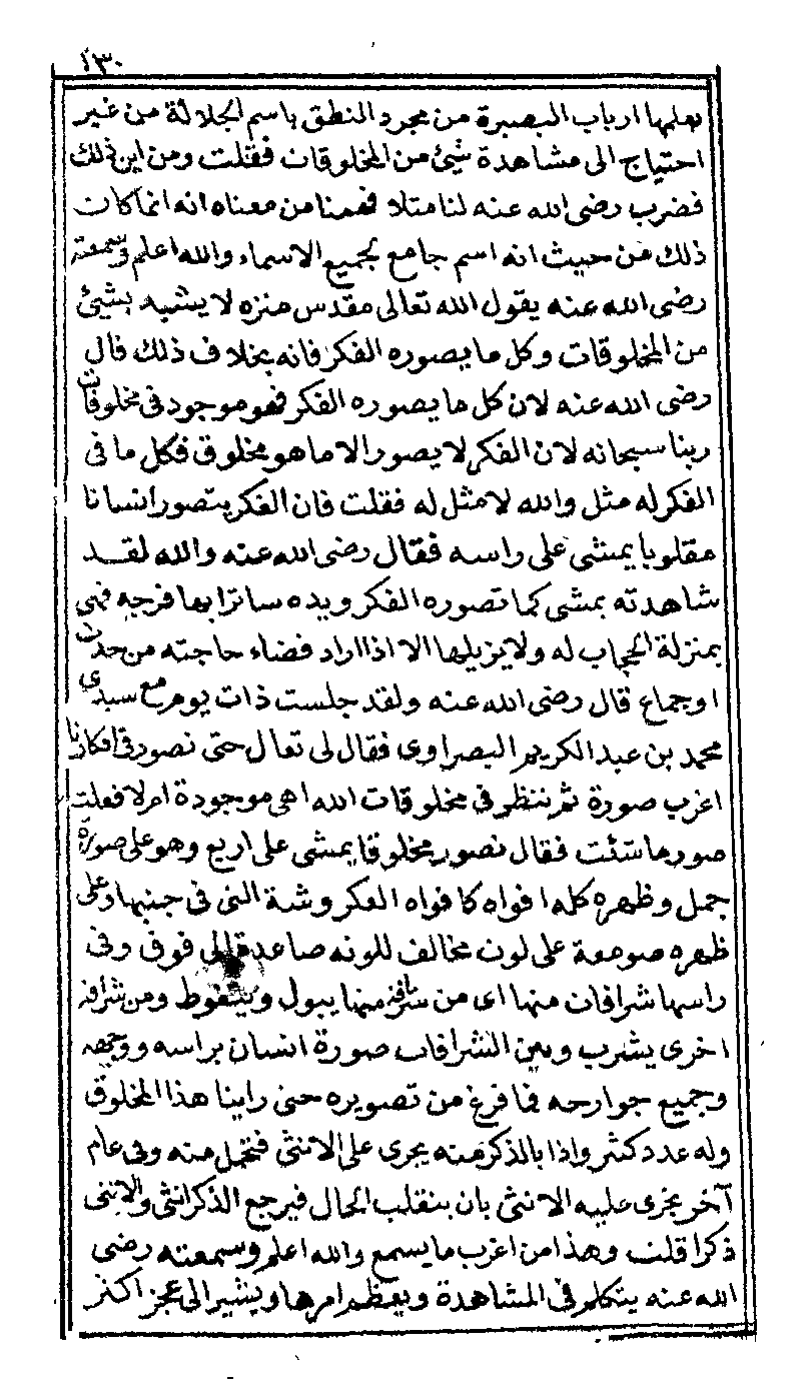 ١٣٠
يعلمها ارباب البصيرة من مجرد النطق باسم الجلالة من غير
احتياج الى مشاهدة شيئ من المخلوقات فقلت ومن اين ذلك
فضرب رضى الله عنه لنا مثلا ففهمنا من معناه انه انما كان
ذلك من حيث انه اسم جامع لجميع الاسماء والله اعلم وسمعته
رضى الله عنه يقول الله تعالى مقدس منزه لا يشبه بشيئ
من المخلوقات وكل ما يصوره الفكر فانه بخلاف ذلك قال
رضى الله عنه لان كل ما يصوره الفكر فهو موجود فى مخلوقات
ربنا سبحانه لان الفكر لا يصور الا ما هو مخلوق فكل ما فى
الفكر له مثل والله لا مثل له فقلت فان الفكر يتصور انسانا
مقلوبا يمشى على راسه فقال رضى الله عنه والله لقد
شاهدته يمشى كما تصوره الفكر ويده ساترا بها فرجه فهى
بمنزلة الحجاب له ولا يزيلها الا اذا اراد قضاء حاجته من حدث
او جماع قال رضى الله عنه ولقد جلست ذات يوم مع سيدى
محمد بن عبد الكريم البصراوى فقال لى تعال حتى نصور فى افكارنا
اغرب صورة ثم ننظر فى مخلوقات الله اهى موجودة ام لا فعلت
صور ما شئت فقال نصور مخلوقا يمشى على اربع وهو على صورة
جمل وظهره كله افواه كافواه العكروشة التى فى جنبها وعلى
ظهره صومعة على لون مخالف للونه صاعدة الى فوق وفى
راسها شرافات منها اى من شرافة منها يبول ويتغوط ومن شرافة
اخرى يشرب وبين الشرافات صورة انسان براسه ووجهه
وجميع جوارحه فما فرغ من تصويره حتى راينا هذا المخلوق
وله عدد كثير واذا بالذكر منه يجرى على الانثى فتحمل منه وفى عام
آخر يجرى عليه الانثى بان ينقلب الحال فيرجع الذكر انثى والانثى
ذكرا قلت وهذا من اغرب ما يسمع والله اعلم وسمعته رضى
الله عنه يتكلم فى المشاهدة ويعظم امرها ويشير الى عجز اكثر